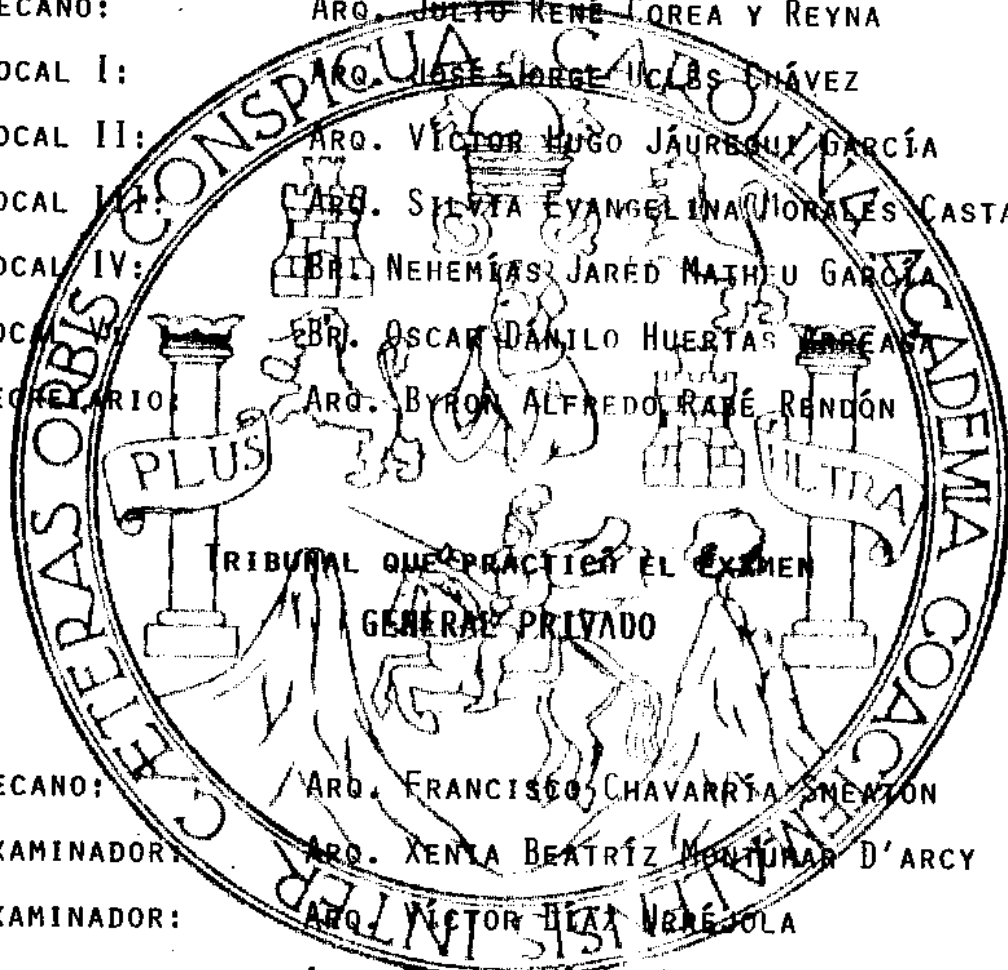 ECANO: ARQ. JULIO RENÉ COREA Y REYNA
OCAL I: ARQ. JOSÉ JORGE UCLÉS CHÁVEZ
OCAL II: ARQ. VÍCTOR HUGO JÁUREGUI GARCÍA
OCAL III: ARQ. SILVIA EVANGELINA MORALES CASTA
OCAL IV: BR. NEHEMÍAS JARED MATHEU GARCÍA
OCAL V: BR. OSCAR DÁNILO HUERTAS
ECRETARIO: ARQ. BYRON ALFREDO RABÉ RENDÓN
TRIBUNAL QUE PRÁCTICO EL EXÁMEN
GENERAL PRIVADO
ECANO: ARQ. FRANCISCO CHAVARRÍA SMEATON
XAMINADOR: ARQ. XENIA BEATRÍZ MONTÚFAR D'ARCY
XAMINADOR: ARQ. VÍCTOR DÍAZ URRÉJOLA
CAETERAS ORBIS CONSPICUA CAROLINA ACADEMIA COACTEMALTENSIS INTER
PLUS
ULTRA